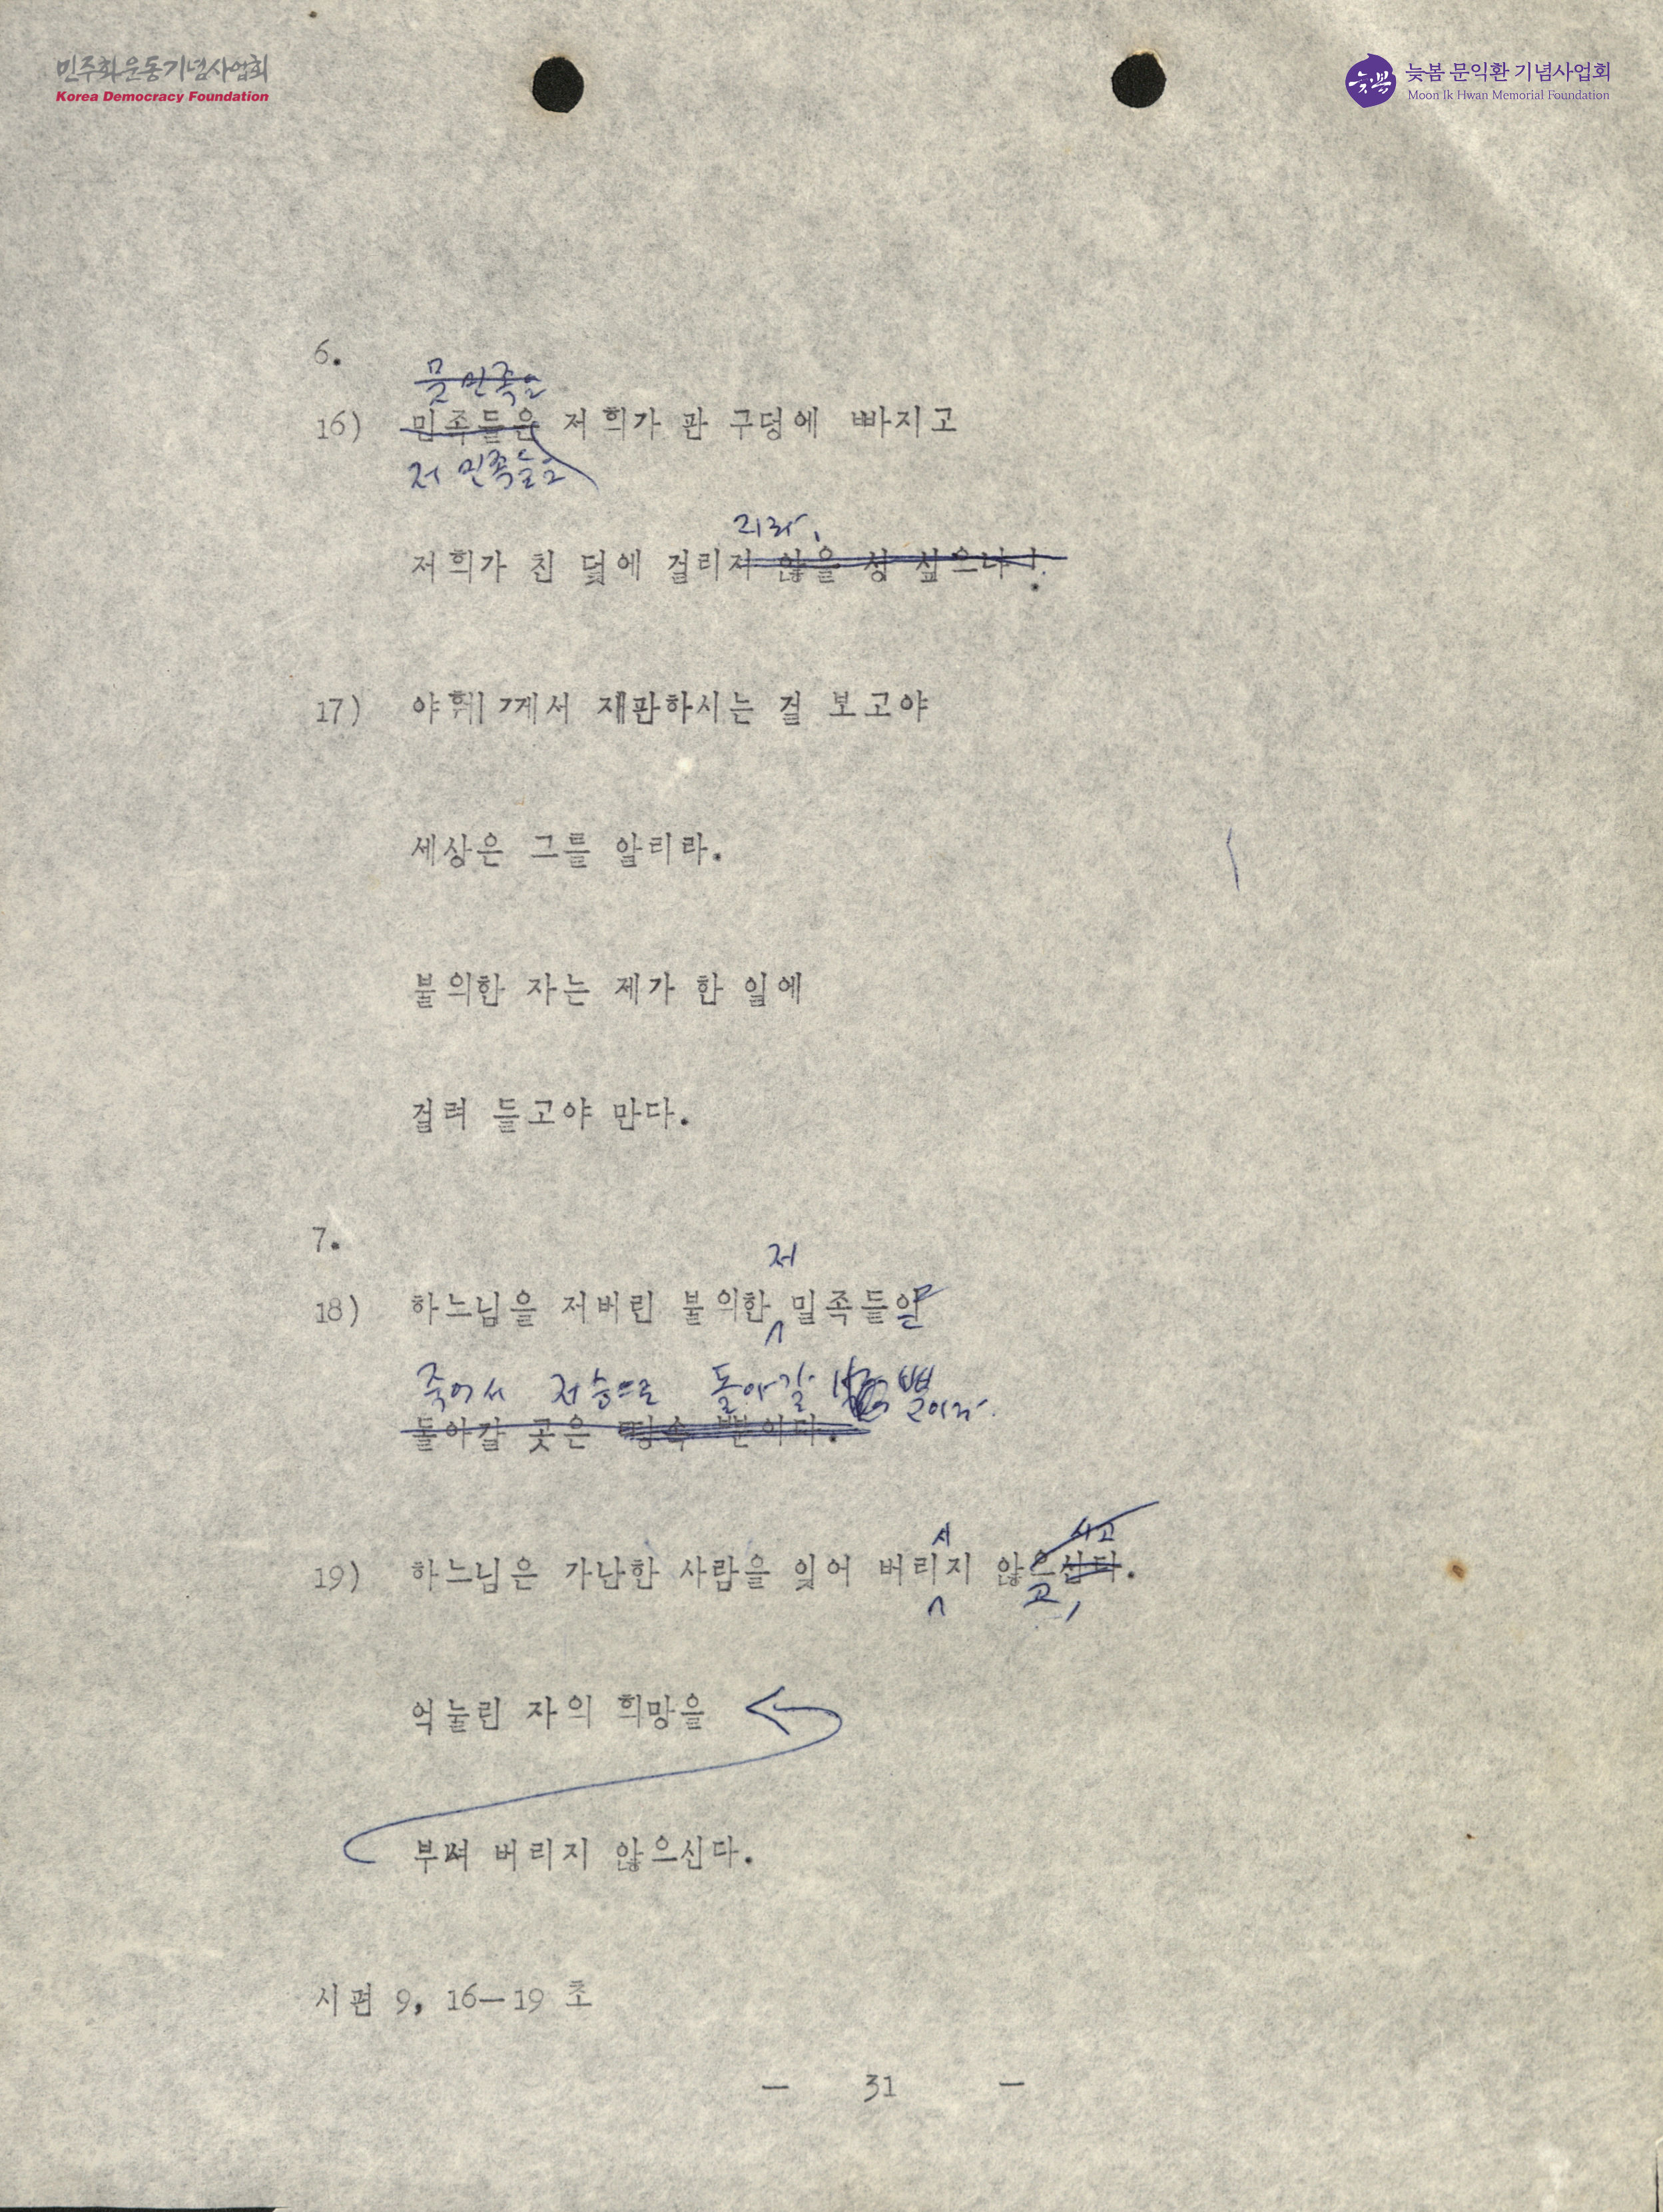 민주화운동기념사업회
Korea Democracy Foundation
늦봄 문익환 기념사업회
Moon Ik Hwan Memorial Foundation
늦봄
6.
뭇 민족은
16) 민족들은 저희가 판 구덩에 빠지고
저 민족들은
리라.
저희가 친 덫에 걸리지 않을 성 싶으냐!
17) 야훼께서 재판하시는 걸 보고야
세상은 그를 알리라.
불의한 자는 제가 한 일에
걸려 들고야 만다.
7.
저
18) 하느님을 저버린 불의한 민족들은
죽어서 저승으로 돌아갈 뿐이라.
돌아갈 곳은 땅속 뿐이다.
시 시고
19) 하느님은 가난한 사람을 잊어 버리지 않으신다.
고,
억눌린 자의 희망을
부셔 버리지 않으신다.
시편 9, 16—19 초
— 31 —